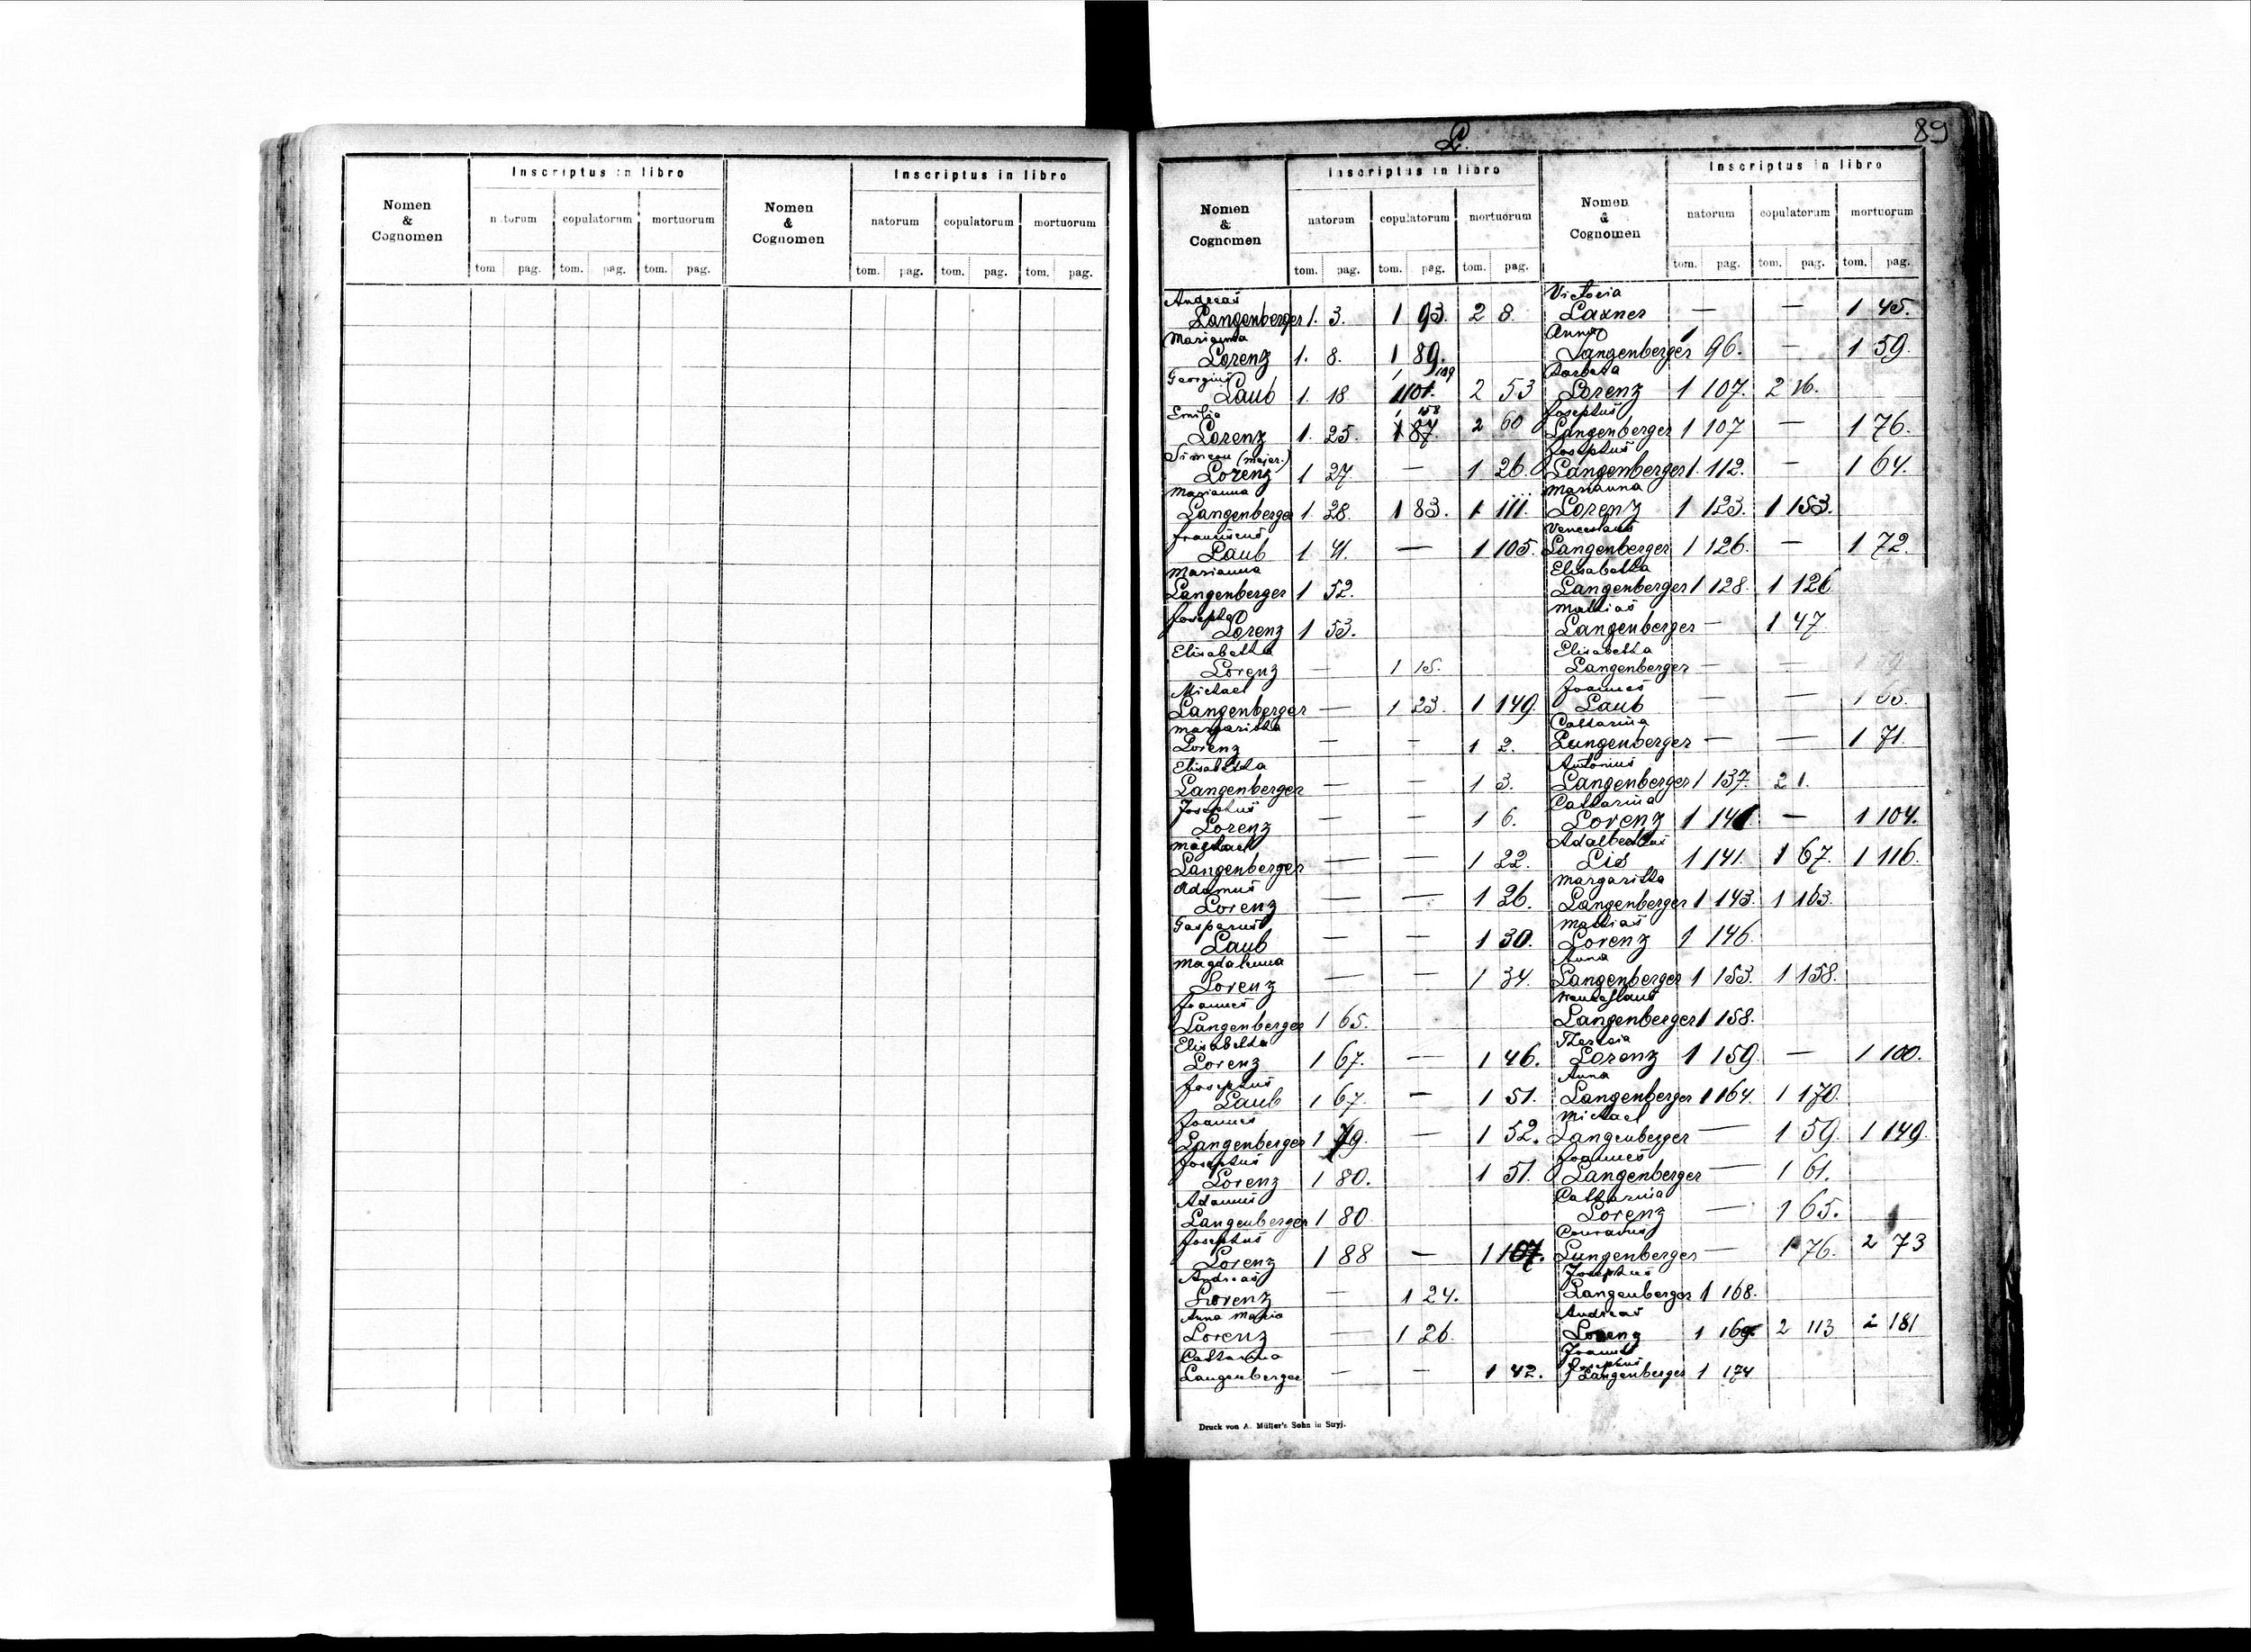 Inscriptus in libro
Inscriptus in libro
Nomen & Cognomen natorum copulatorum mortuorum Nomen & Cognomen natorum copulatorum mortuorum
tom pag. tom. pag. tom. pag. tom. pag. tom. pag. tom. pag.
L. 89
Inscriptus in libro
Inscriptus in libro
Nomen & Cognomen natorum copulatorum mortuorum Nomen & Cognomen natorum copulatorum mortuorum
tom. pag. tom. pag. tom. pag. tom. pag. tom. pag. tom. pag.
Andreas
Langenberger 1. 3. 1 93. 2 8.
Marianna
Lorenz 1. 8. 1 89.
Georgius 1 109
Laub 1. 18 1 101. 2 53
Emilia 1 158
Lorenz 1. 25. 1 87. 2 60
Simeon (major.)
Lorenz 1 27. — 1 26.
Marianna
Langenberger 1. 28. 1 83. 1 111.
Franciscus
Laub 1 41. — 1 105.
Marianna
Langenberger 1 52.
Josepha
Lorenz 1 53.
Elisabetha
Lorenz — 1 15.
Michael
Langenberger — 1 23. 1 149.
Margaritha
Lorenz — — 1 2.
Elisabetha
Langenberger — — 1 3.
Josephus
Lorenz — — 1 6.
Langenberger — — 1 22.
Adamus
Lorenz — — 1 26.
Gasparus
Laub — — 1 30.
Magdalenna
Lorenz — — 1 34.
Joannes
Langenberger 1 65.
Elisabetha
Lorenz 1 67. — 1 46.
Josephus
Laub 1 67. — 1 51.
Joannes
Langenberger 1 79. — 1 52.
Josephus
Lorenz 1 80. 1 51.
Adamus
Langenberger 1 80
Josephus
Lorenz 1 88 — 1 107.
Andreas
Lorenz — 1 24.
Anna Maria
Lorenz — 1 26.
Catharina
Langenberger — — 1 42.
Victoria
Laxner — — 1 45.
Anna
Langenberger 1 96. — 1 59.
Barbara
Lorenz 1 107. 2 16.
Josephus
Langenberger 1 107 — 1 76.
Josephus
Langenberger 1. 112. — 1 64.
Marianna
Lorenz 1 123. 1 153.
Venceslaus
Langenberger 1 126. — 1 72.
Elisabetha
Langenberger 1 128. 1 126
Mathias
Langenberger — 1 47
Elisabetha
Langenberger — —
Joannes
Laub — —
Catharina
Langenberger — — 1 71.
Antonius
Langenberger 1 137. 2 1.
Catharina
Lorenz 1 141 — 1 104.
Adalbertus
Lis 1 141. 1 67. 1 116.
Margaritha
Langenberger 1 143. 1 163.
Mathias
Lorenz 1 146.
Anna
Langenberger 1 153. 1 158.
Langenberger 1 158.
Theresia
Lorenz 1 159. — 1 100.
Anna
Langenberger 1 164. 1 170.
Michael
Langenberger — 1 59. 1 149.
Joannes
Langenberger — 1 61.
Catharina
Lorenz — 1 65.
Conradus
Langenberger — 1 76. 2 73
Josephus
Langenberger 1 168.
Andreas
Lorenz 1 169. 2 113 2 181
Joannes
Josephus
Langenberger 1 174
Druck von A. Müller's Sohn in Stryj.